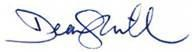 Dean Smith